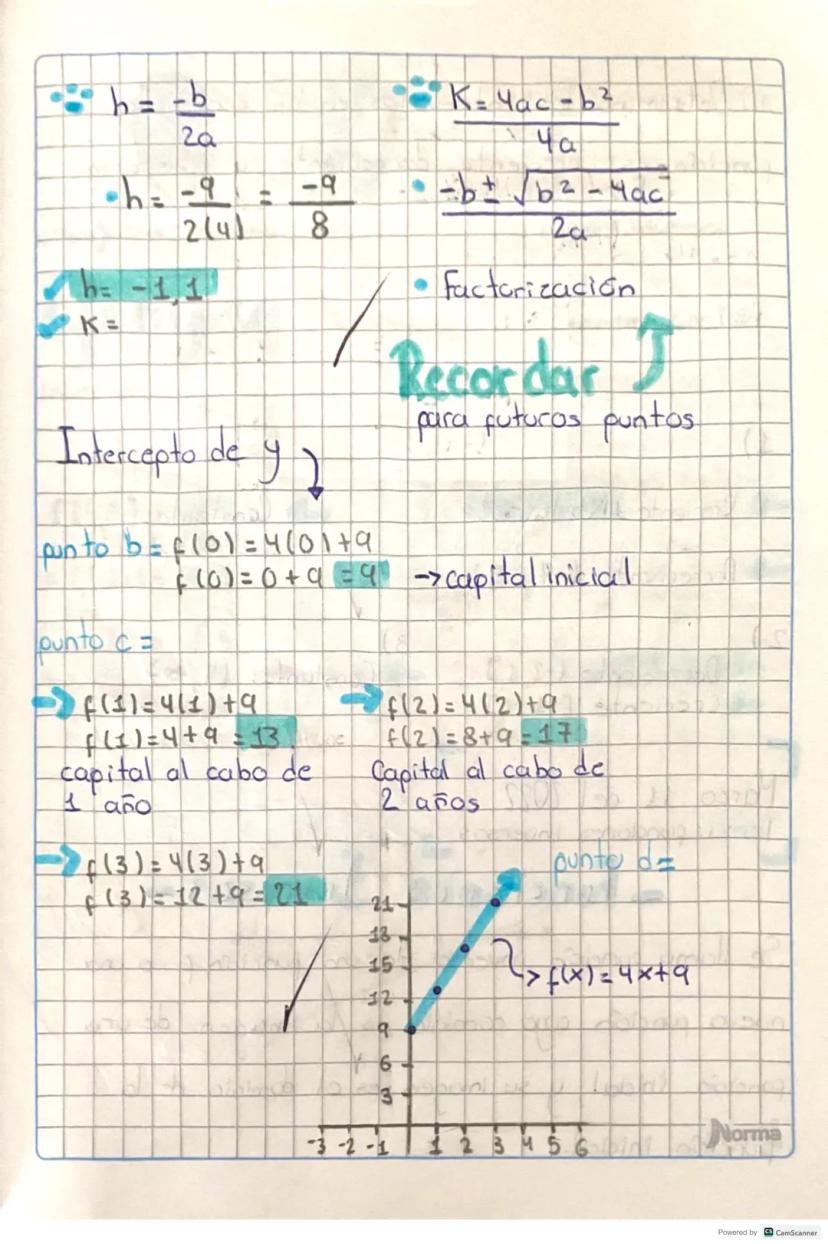 h = -b
2a
K = 4ac - b²
4a
• h = -9 = -9
2(4) 8
• -b ± √b² - 4ac
2a
h = -1,1
K =
• factorización
Recordar
para futuros puntos
Intercepto de y
punto b = f(0) = 4(0)+9
f(0) = 0 + 9 = 9 → capital inicial
punto c =
→ f(1) = 4(1)+9
f(1) = 4+9 = 13
capital al cabo de
1 año
→ f(2) = 4(2)+9
f(2) = 8+9 = 17
Capital al cabo de
2 años
→ f(3) = 4(3)+9
f(3) = 12+9 = 21
punto d =
21
18
15
12
9
6
3
-3 -2 -1 1 2 3 4 5 6
f(x) = 4x+9
Norma
Powered by CS CamScanner